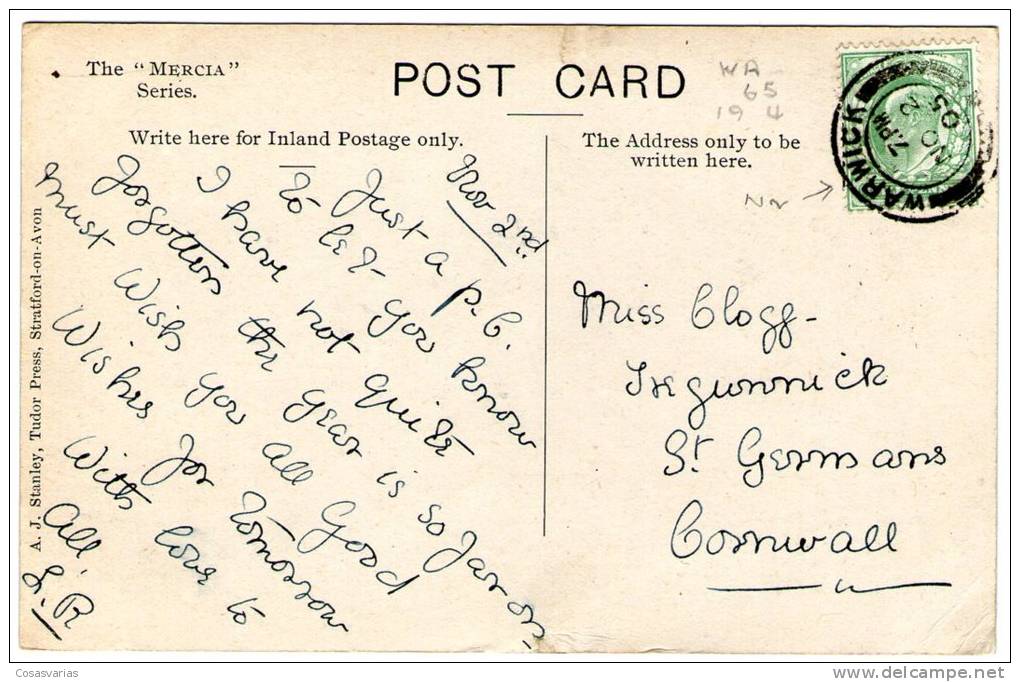 The "MERCIA"
Series.
POST CARD
WA
65
19 4
Write here for Inland Postage only.
The Address only to be
written here.
WARWICK
7 PM
NO 2
05
Nov 2nd
Just a p.c.
To let you know
I have not quite
forgotten the year is so far on
must wish you all good
wishes for tomorrow
with love to
all.
L.R
Miss Clogg-
Tregunnick
St Germans
Cornwall
A. J. Stanley, Tudor Press, Stratford-on-Avon
Cosasvarias
delcampe.net